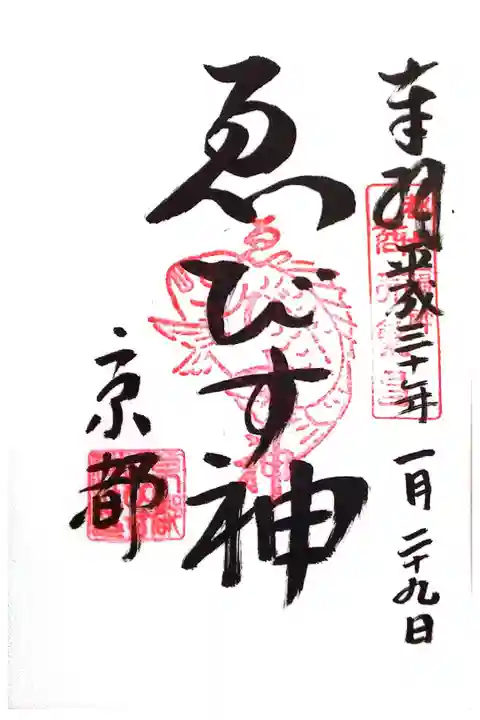 奉拝 平成三十年 一月 二十九日
ゑびす神
京都